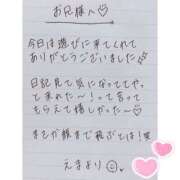 お兄様へ♡
今日は遊びに来てくれて
ありがとうございました
日記見て気になっててやっ
と来れた〜！って言って
もらえて嬉しかった〜♡
まさか顔まで飛ぶとは！笑
えまより